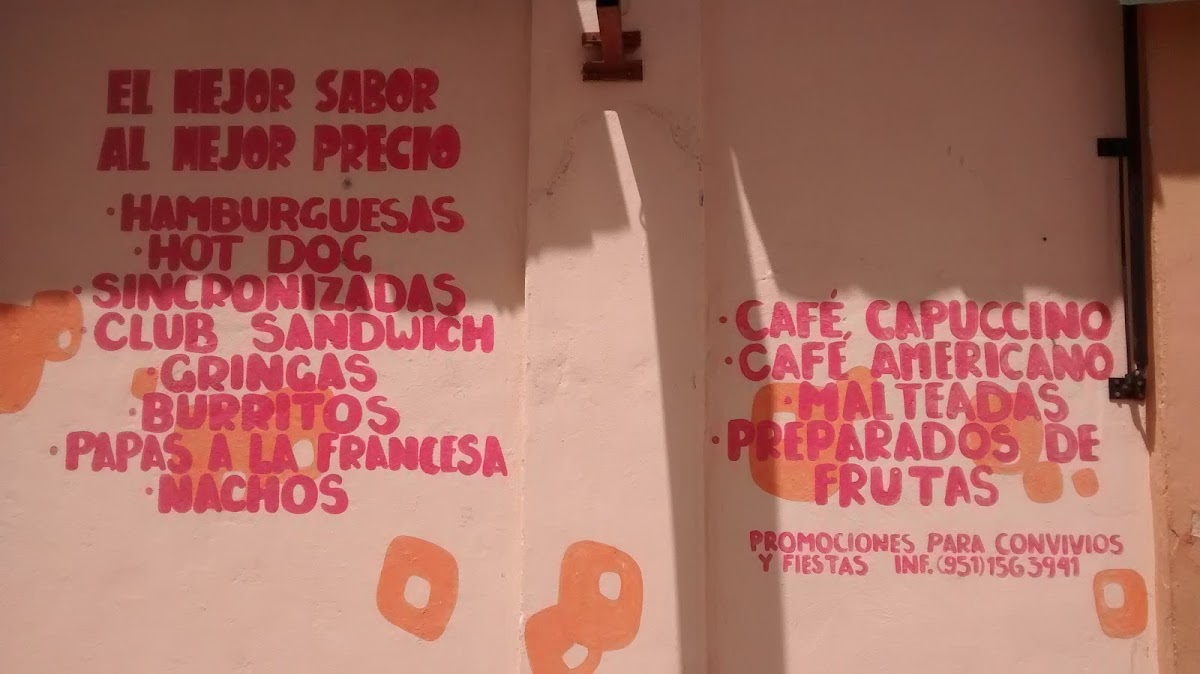 EL MEJOR SABOR
AL MEJOR PRECIO
·HAMBURGUESAS
·HOT DOG
·SINCRONIZADAS
·CLUB SANDWICH
·GRINGAS
·BURRITOS
·PAPAS A LA FRANCESA
·NACHOS
·CAFÉ, CAPUCCINO
·CAFÉ AMERICANO
·MALTEADAS
·PREPARADOS DE
FRUTAS
PROMOCIONES PARA CONVIVIOS
Y FIESTAS INF. (951) 156 3941